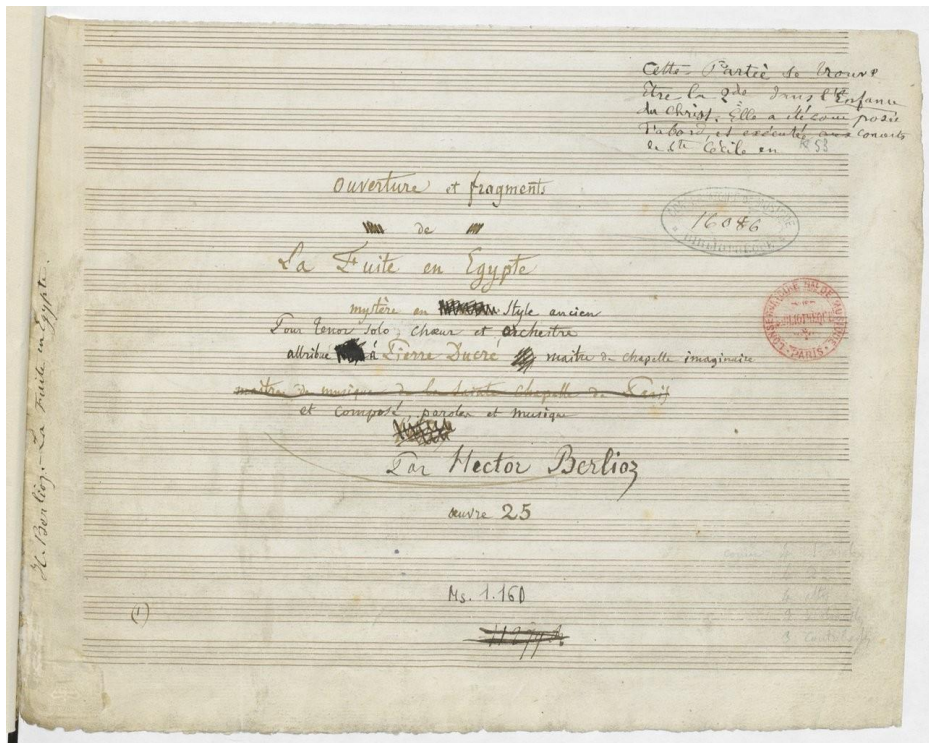 Cette Partie se trouve
Etre la 2de dans l'Enfance
du Christ. Elle a été composée
d'abord, et exécutée aux concerts
de Ste Cécile en 53
Ouverture et fragments
de
La Fuite en Egypte
mystère en Style ancien
Pour tenor solo, chœur et orchestre
attribué à Pierre Ducré maitre de chapelle imaginaire
maitre de musique de la Sainte Chapelle de Paris
et composé, paroles et musique
Par Hector Berlioz
œuvre 25
Ms. 1.160
(1)
16086
CONSERVATOIRE DE MUSIQUE
BIBLIOTHÈQUE
PARIS
H. Berlioz. - La Fuite en Egypte.